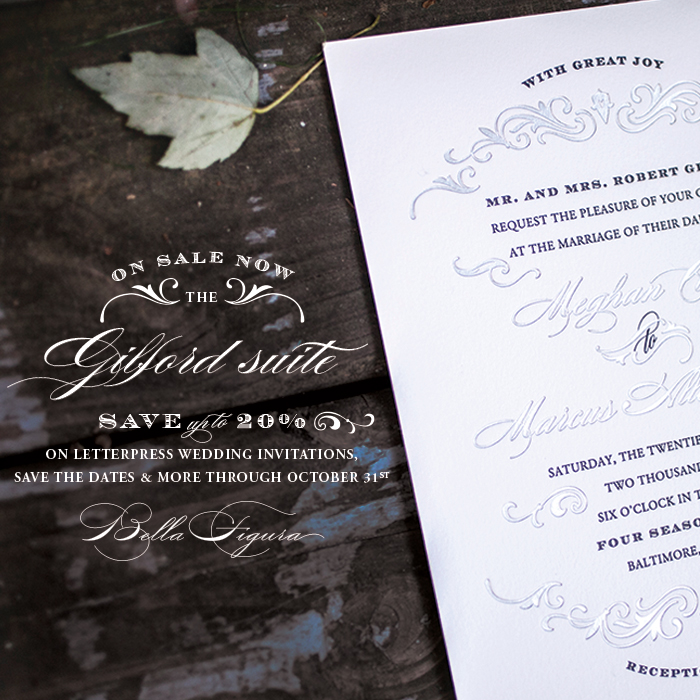 ON SALE NOW
THE
Gilford suite
SAVE up to 20%
ON LETTERPRESS WEDDING INVITATIONS,
SAVE THE DATES & MORE THROUGH OCTOBER 31ST
Bella Figura
WITH GREAT JOY
MR. AND MRS. ROBERT
REQUEST THE PLEASURE OF YOUR
AT THE MARRIAGE OF THEIR
Meghan
to
Marcus
SATURDAY, THE
TWO THOUSAND
SIX O'CLOCK IN
FOUR
BALTIMORE,